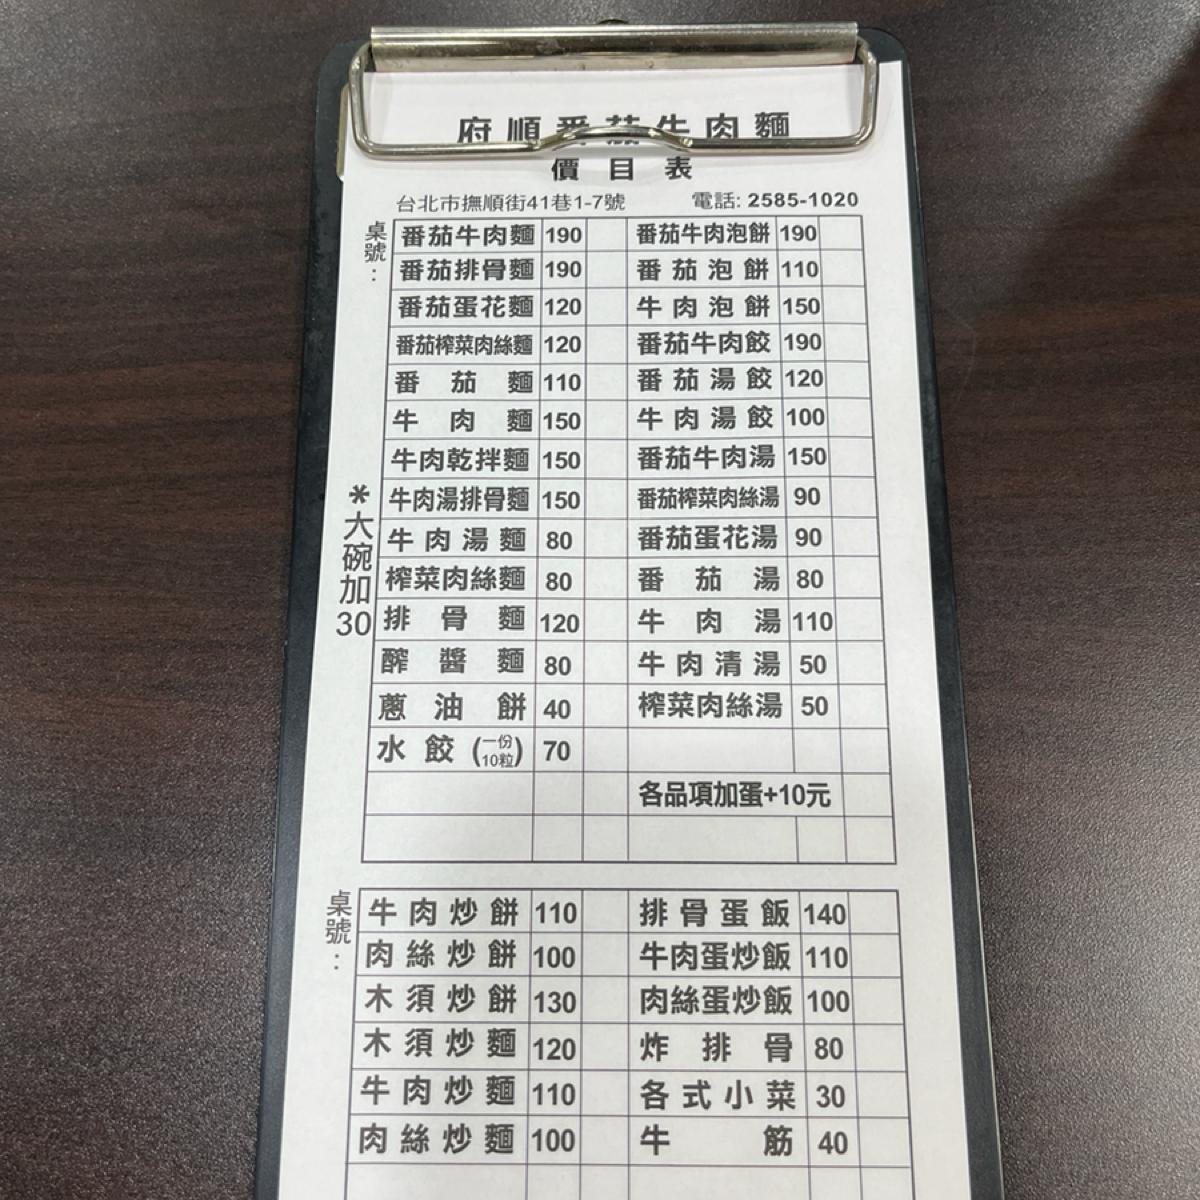 府順番茄牛肉麵
價目表
台北市撫順街41巷1-7號 電話: 2585-1020
桌號:
番茄牛肉麵 190 番茄牛肉泡餅 190
番茄排骨麵 190 番茄泡餅 110
番茄蛋花麵 120 牛肉泡餅 150
番茄榨菜肉絲麵 120 番茄牛肉餃 190
番茄麵 110 番茄湯餃 120
牛肉麵 150 牛肉湯餃 100
牛肉乾拌麵 150 番茄牛肉湯 150
牛肉湯排骨麵 150 番茄榨菜肉絲湯 90
牛肉湯麵 80 番茄蛋花湯 90
榨菜肉絲麵 80 番茄湯 80
排骨麵 120 牛肉湯 110
醡醬麵 80 牛肉清湯 50
蔥油餅 40 榨菜肉絲湯 50
水餃(一份10粒) 70
各品項加蛋+10元
*大碗加30
桌號:
牛肉炒餅 110 排骨蛋飯 140
肉絲炒餅 100 牛肉蛋炒飯 110
木須炒餅 130 肉絲蛋炒飯 100
木須炒麵 120 炸排骨 80
牛肉炒麵 110 各式小菜 30
肉絲炒麵 100 牛筋 40